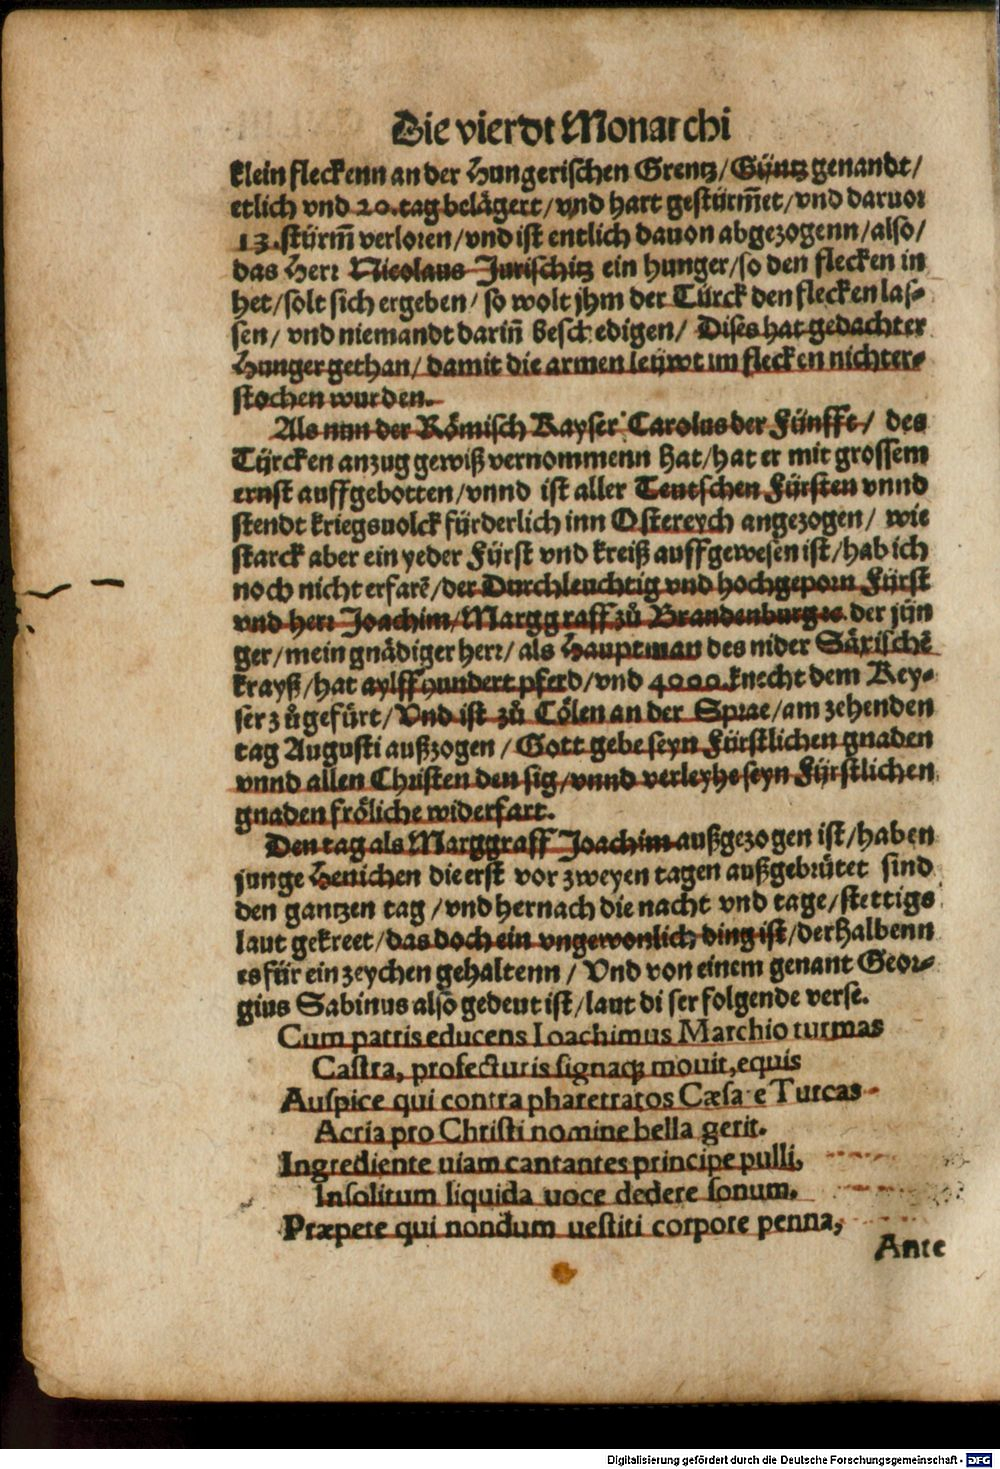 Die vierdt Monarchi
klein fleckenn an der Hungerischen Grentz/Güntz genandt/
etlich vnd 20.tag belägert/vnd hart gestürm̄et/vnd daruor
13.stürm̄ verloren/vnd ist entlich dauon abgezogenn/also/
das Herr Nicolaus Jurischitz ein hunger/so den flecken in
het/solt sich ergeben/ so wolt jhm der Türck den flecken las-
sen/ vnd niemandt darin̄ beschedigen/ Dises hat gedachter
Hunger gethan/ damit die armen leüwt im flecken nicht er-
stochen wurden.
Als nun der Römisch Kayser Carolus der Fünfft/ des
Türcken anzug gewiß vernommenn hat/hat er mit grossem
ernst auffgebotten/vnnd ist aller Teutschen Fürsten vnnd
stendt kriegsuolck fürderlich inn Ostereych angezogen/ wie
starck aber ein yeder Fürst vnd kreiß auffgewesen ist/hab ich
noch nicht erfarē/der Durchleuchtig vnd hochgeporn Fürst
vnd herr Joachim/Marggraff zů Brandenburg ⁊c. der jün
ger/mein gnädiger herr/ als Hauptman des nider Säxischē
krayß/hat aylff hundert pferd/vnd 4000.knecht dem Key-
ser zůgefürt/Vnd ist zů Cölen an der Sprae/am zehenden
tag Augusti außzogen/ Gott gebe seyn Fürstlichen gnaden
vnnd allen Christen den sig/vnnd verleyhe seyn Fürstlichen
gnaden fröliche widerfart.
Den tag als Marggraff Joachim außgezogen ist/haben
junge Henichen die erst vor zweyen tagen außgebrütet sind
den gantzen tag/vnd hernach die nacht vnd tage/stettigs
laut gekreet/das doch ein vngewonlich ding ist/derhalbenn
es für ein zeychen gehaltenn/ Vnd von einem genant Geor-
gius Sabinus also gedeut ist/laut diser folgende verse.
Cum patris educens Ioachimus Marchio turmas
Castra, profecturis signaq; mouit,equis
Auspice qui contra pharetratos Cæsare Turcas
Acria pro Christi nomine bella gerit.
Ingrediente uiam cantantes principe pulli,
Insolitum liquida uoce dedere sonum.
Præpete qui nondum uestiti corpore penna,
Ante
Digitalisierung gefördert durch die Deutsche Forschungsgemeinschaft - DFG